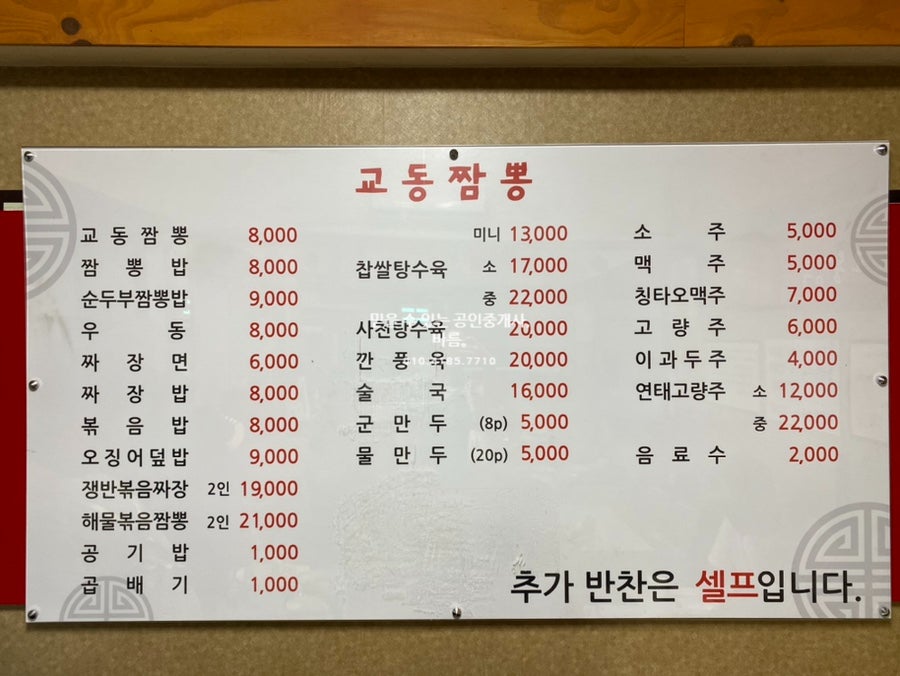 교동짬뽕
교동짬뽕 8,000
짬뽕밥 8,000
순두부짬뽕밥 9,000
우동 8,000
짜장면 6,000
짜장밥 8,000
볶음밥 8,000
오징어덮밥 9,000
쟁반볶음짜장 2인 19,000
해물볶음짬뽕 2인 21,000
공기밥 1,000
곱배기 1,000
미니 13,000
찹쌀탕수육 소 17,000
중 22,000
사천탕수육 20,000
깐풍육 20,000
술국 16,000
군만두 (8p) 5,000
물만두 (20p) 5,000
소주 5,000
맥주 5,000
칭타오맥주 7,000
고량주 6,000
이과두주 4,000
연태고량주 소 12,000
중 22,000
음료수 2,000
추가 반찬은 셀프입니다.
공인중개사